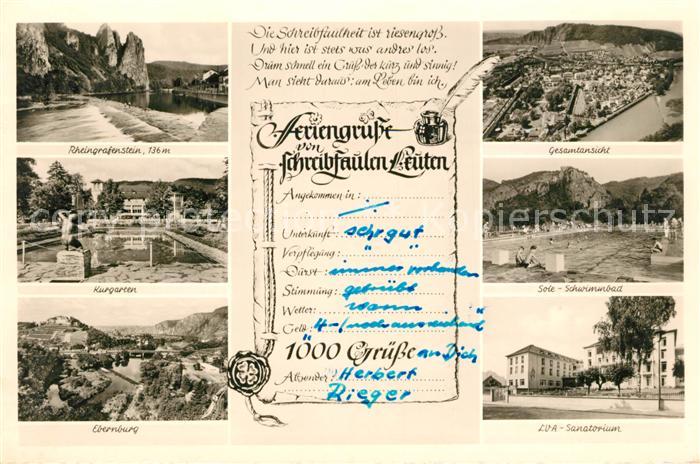 Die Schreibfaulheit ist riesengroß.
Und hier ist stets was andres los.
Drum schnell ein Gruß der kurz und sinnig!
Man sieht daraus: am Leben bin ich.
Rheingrafenstein, 136 m
Kurgarten
Ebernburg
Feriengrüße
von
schreibfaulen Leuten
Angekommen in:
Unterkunft: sehr gut
Verpflegung: " "
Durst: immer vorhanden
Stimmung: getrübt
Wetter: warm
Geld: (noch ausreichend)
1000 Grüße an Dich
Absender: Herbert
Rieger
Gesamtansicht
Sole-Schwimmbad
LVA-Sanatorium